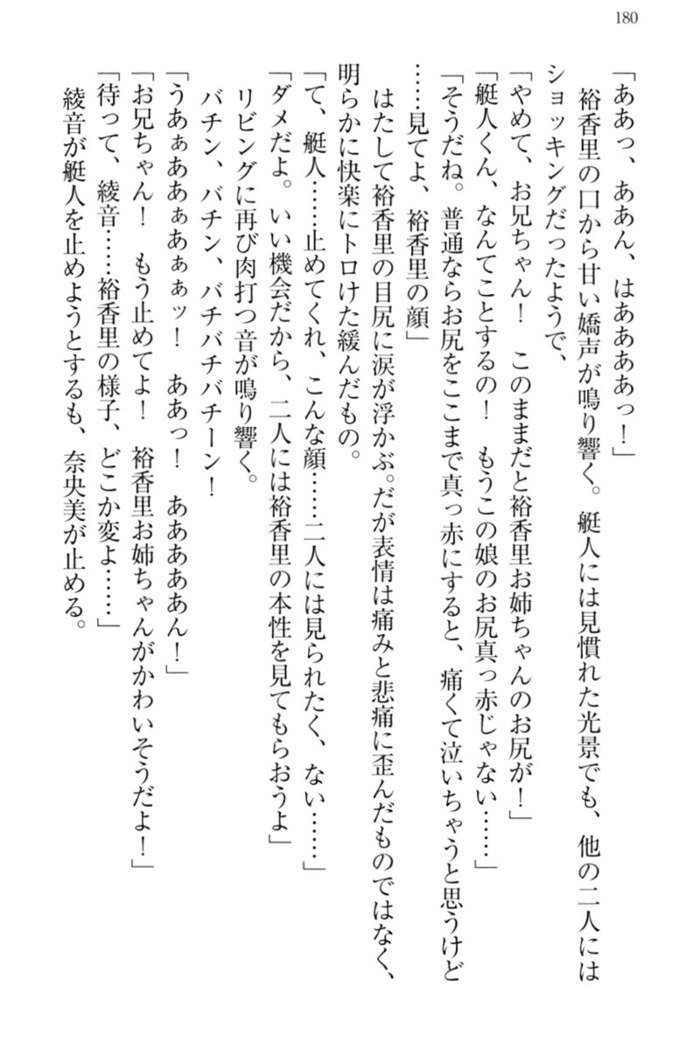 180
「ああっ、ああん、はああああっ！」
　裕香里の口から甘い嬌声が鳴り響く。艇人には見慣れた光景でも、他の二人には
ショッキングだったようで、
「やめて、お兄ちゃん！　このままだと裕香里お姉ちゃんのお尻が！」
「艇人くん、なんてことするの！　もうこの娘のお尻真っ赤じゃない……」
「そうだね。普通ならお尻をここまで真っ赤にすると、痛くて泣いちゃうと思うけど
……見てよ、裕香里の顔」
　はたして裕香里の目尻に涙が浮かぶ。だが表情は痛みと悲痛に歪んだものではなく、
明らかに快楽にトロけた緩んだもの。
「て、艇人……止めてくれ、こんな顔……二人には見られたく、ない……」
「ダメだよ。いい機会だから、二人には裕香里の本性を見てもらおうよ」
　リビングに再び肉打つ音が鳴り響く。
　バチン、バチン、バチバチバチーン！
「うあぁああぁあぁぁッ！　ああっ！　あああああん！」
「お兄ちゃん！　もう止めてよ！　裕香里お姉ちゃんがかわいそうだよ！」
「待って、綾音……裕香里の様子、どこか変よ……」
　綾音が艇人を止めようとするも、奈央美が止める。